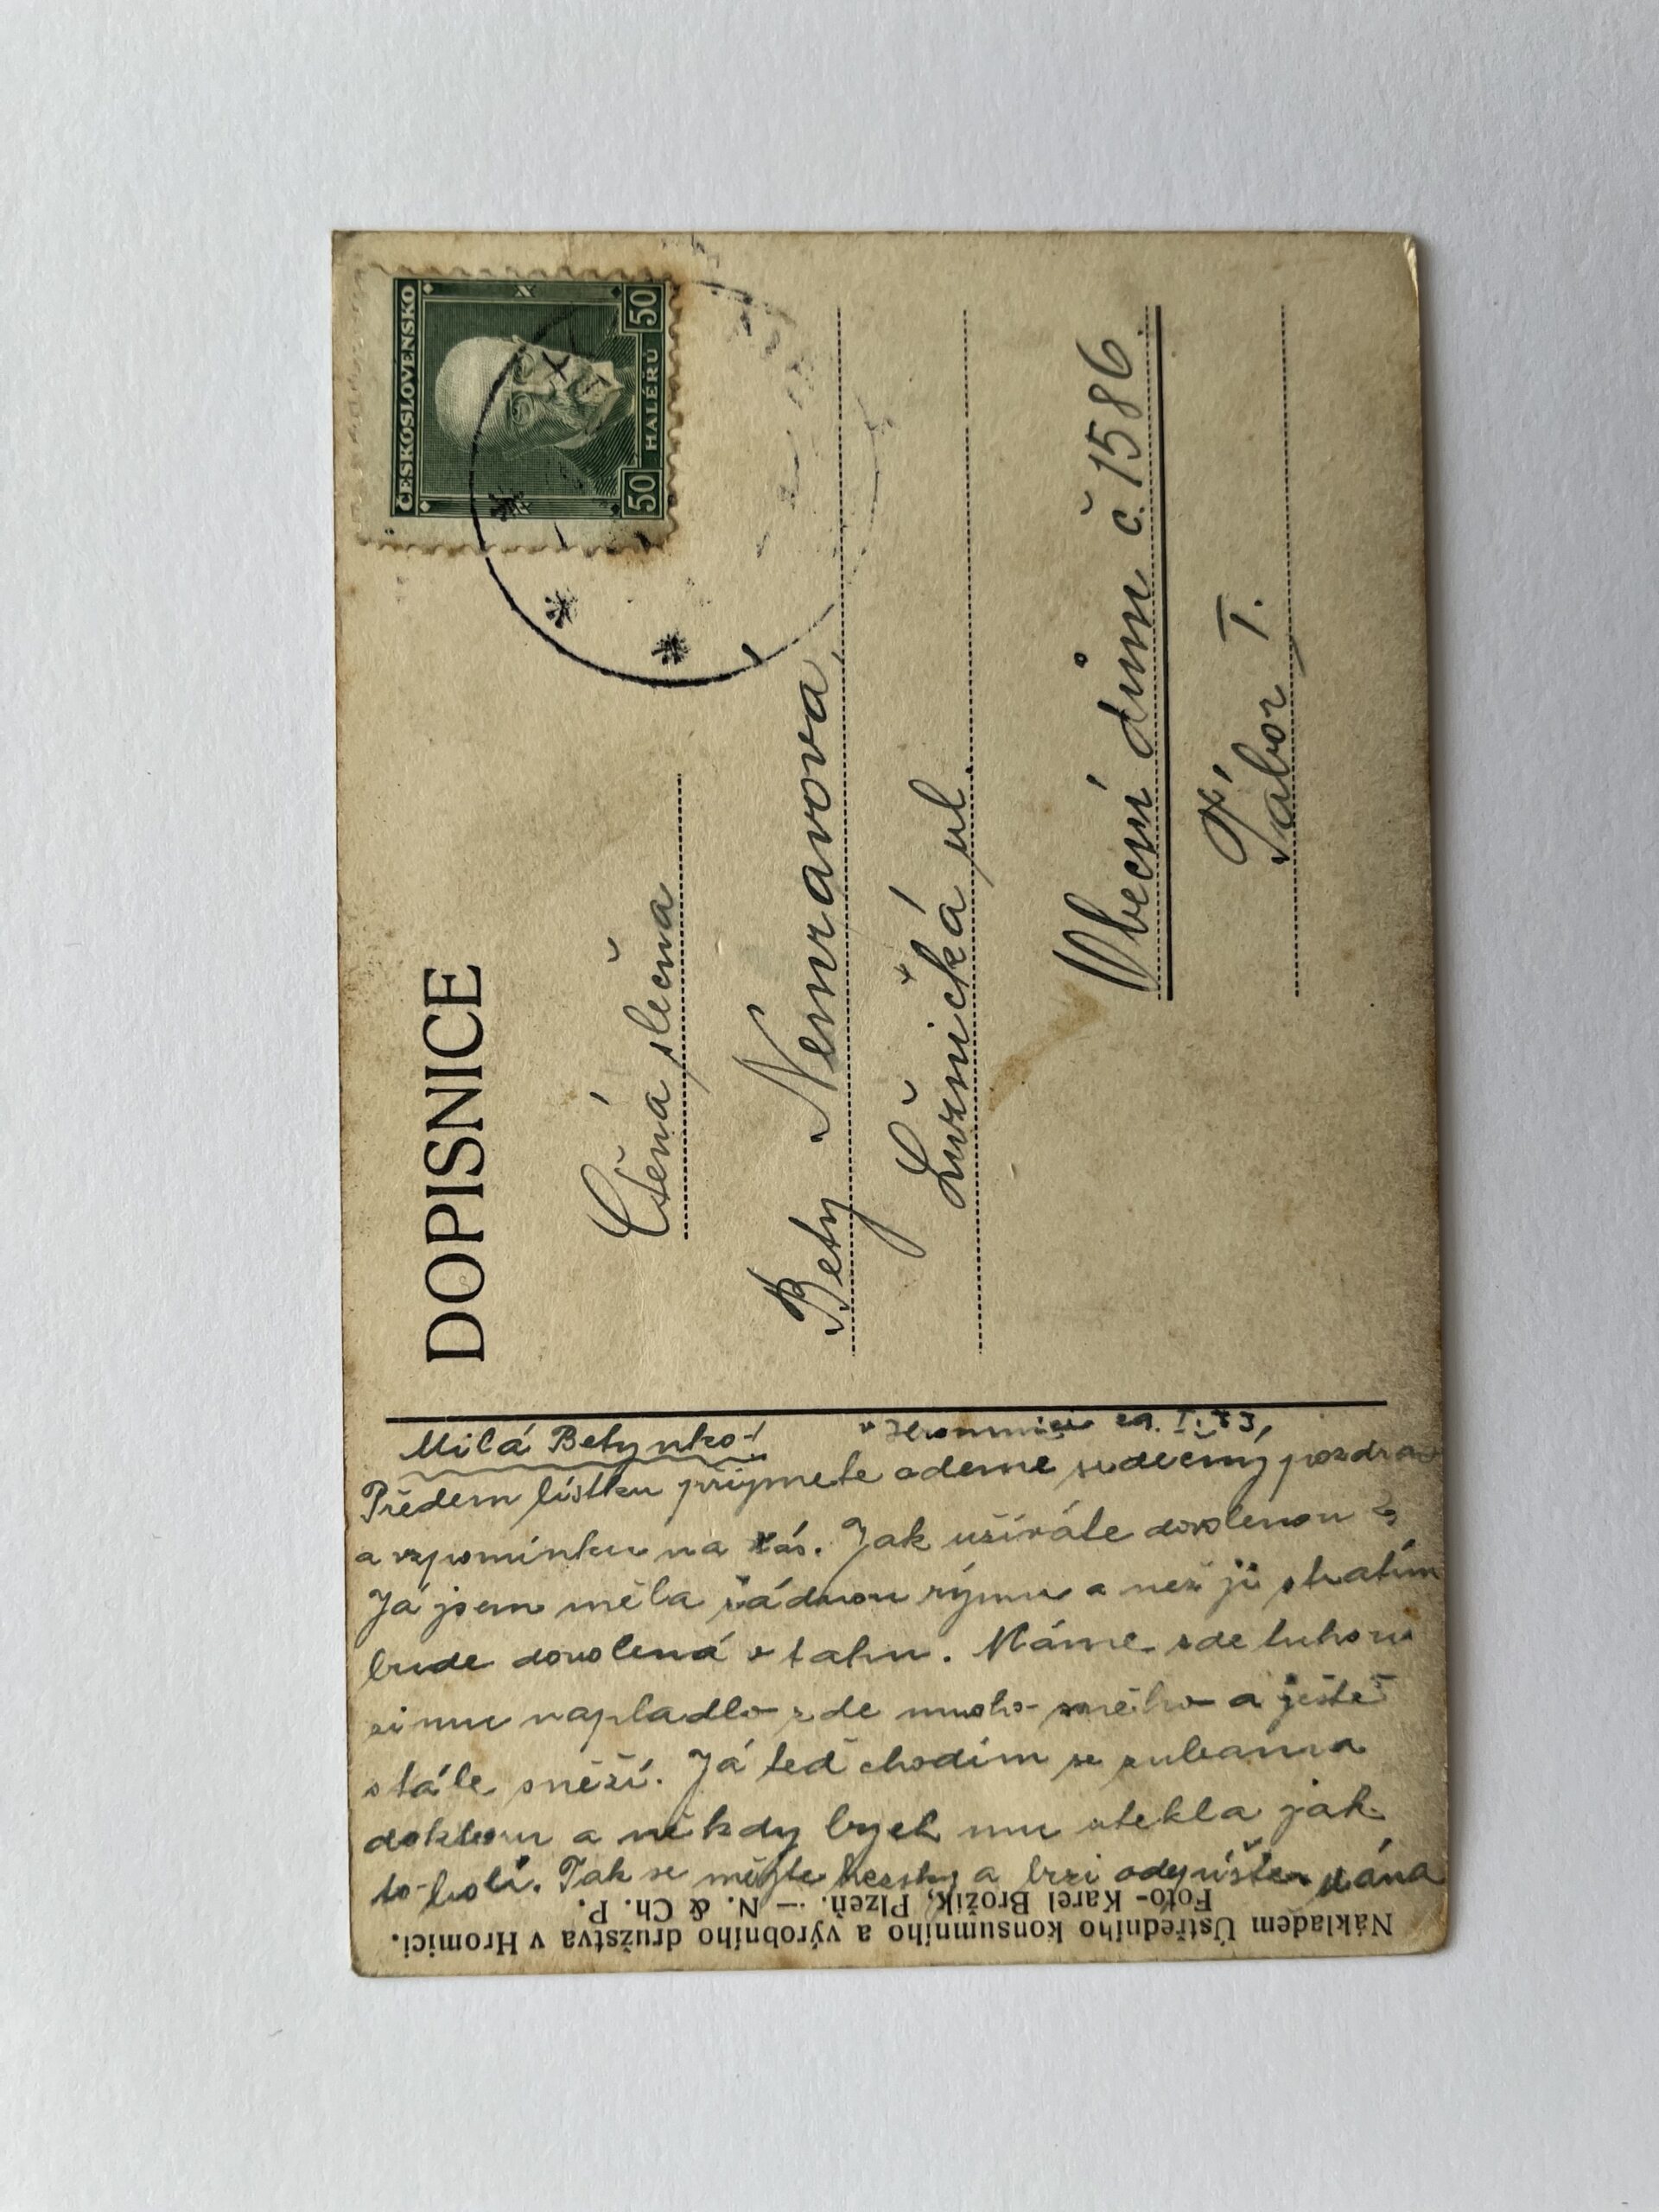 DOPISNICE
ČESKOSLOVENSKO
50 HALÉRU 50
Ctěná slečna
Bety Nemravova
Lužnická ul.
Obecní dům č. 1586
Tábor I.
Milá Betynko!
v Hromnici 29. I. 33,
Předem lístku přijmete odemě srdečný pozdrav
a vzpomínku na vás. Jak užíváte dovolenou?
Já jsem měla řádnou rýmu a než ji ztratím
bude dovolená v tahu. Máme zde tuhou
zimu napladlo zde moho sněho a ještě
stále sněží. Já teď chodím se zubama
doktoru a někdy bych mu utekla jak
to bolí. Tak se mějte hezky a brzi odepište
Foto Karel Brožík, Plzeň. — N. & Ch. P.
Nákladem Ústředního konsumního a výrobního družstva v Hromici.